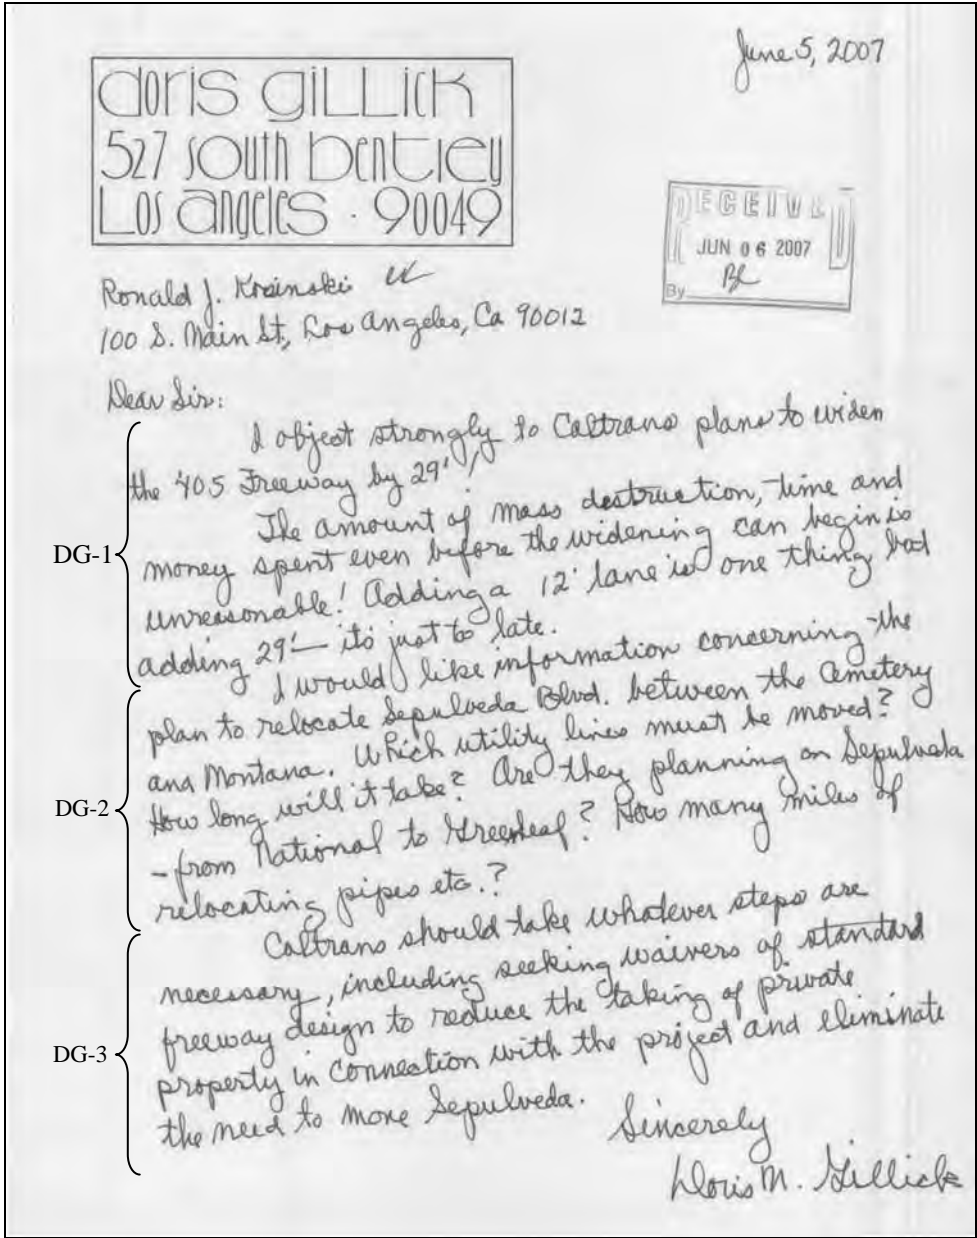 June 5, 2007
doris gillick
527 south bentley
Los angeles · 90049
RECEIVED
JUN 06 2007
By
Ronald J. Kosinski
100 S. Main St, Los Angeles, Ca 90012
Dear Sir:
I object strongly to Caltrans plans to widen
the 405 Freeway by 29'!
DG-1
The amount of mass destruction, time and
money spent even before the widening can begin is
unreasonable! Adding a 12' lane is one thing but
adding 29' — its just to late.
I would like information concerning the
plan to relocate Sepulveda Blvd. between the Cemetery
and Montana. Which utility lines must be moved?
DG-2
How long will it take? Are they planning on Sepulveda
- from National to Greenleaf? How many miles of
relocating pipes etc.?
Caltrans should take whatever steps are
necessary, including seeking waivers of standard
freeway design to reduce the taking of private
DG-3
property in connection with the project and eliminate
the need to move Sepulveda.
Sincerely
Doris M. Gillick